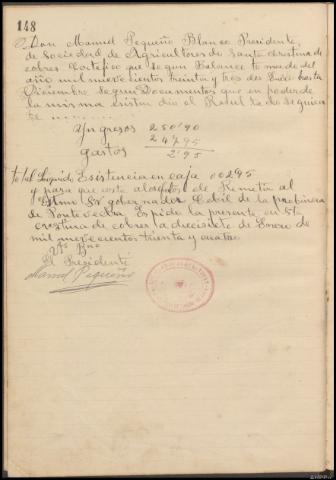 148
Don Manuel Pequeño Blanco Presidente,
de Sociedad de Agricultores de Santa Cristina de
cobres Certefico que segun Balance tomado del
año mil nuevecientos treinta y tres des Enero hasta
Diciembre segun Documentos que en poder de
la misma esisten dio el Resultado siguien
te
Yngresos 250'90
Gastos 247'95
2'95
total liquido Esistencia en caja 00295
y para que coste a los de Remeta al
Ilmo Sr gobernador Cebil de la probincia
de Pontevedra Espide la presente en Sta
cristina de cobres a diecisiete de Enero de
mil nuevecientos trenta y cuatro.
Vto Bno
El Presidente
Manuel Pequeño